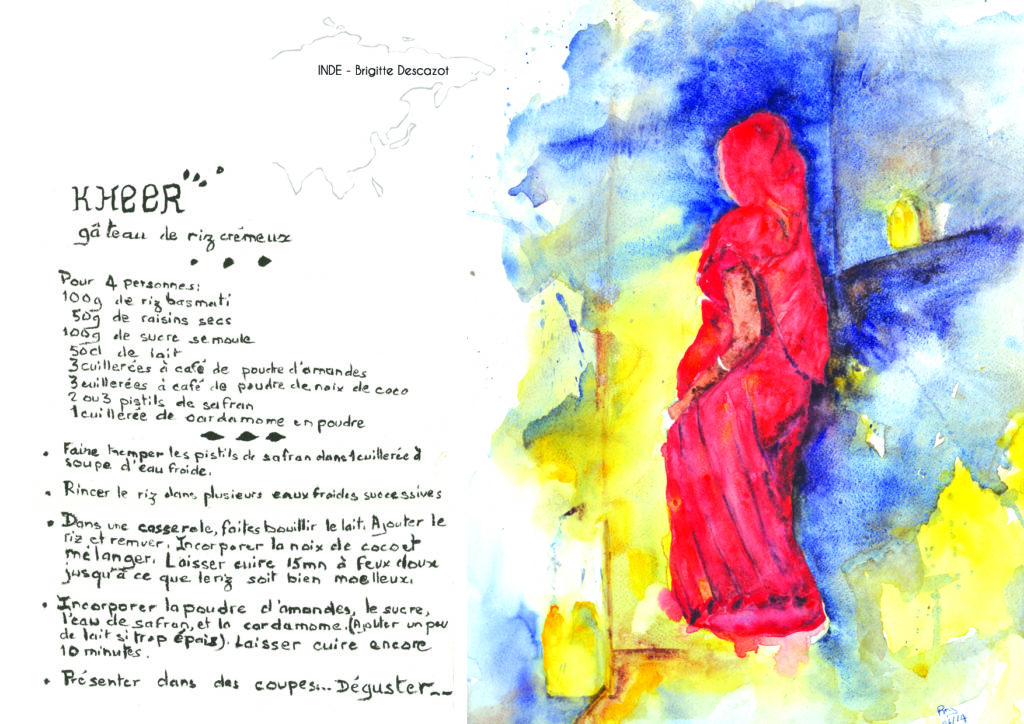 INDE - Brigitte Descazot
KHEER
gâteau de riz crémeux
Pour 4 personnes:
100g de riz basmati
50g de raisins secs
100g de sucre semoule
50cl de lait
3 cuillerées à café de poudre d'amandes
3 cuillerées à café de poudre de noix de coco
2 ou 3 pistils de safran
1 cuillerée de cardamome en poudre
• Faire tremper les pistils de safran dans 1 cuillerée à
soupe d'eau froide.
• Rincer le riz dans plusieurs eaux froides successives
• Dans une casserole, faites bouillir le lait. Ajouter le
riz et remuer. Incorporer la noix de coco et
mélanger. Laisser cuire 15mn à feux doux
jusqu'à ce que le riz soit bien moelleux.
• Incorporer la poudre d'amandes, le sucre,
l'eau de safran, et la cardamome. (Ajouter un peu
de lait si trop épais). Laisser cuire encore
10 minutes.
• Présenter dans des coupes... Déguster__